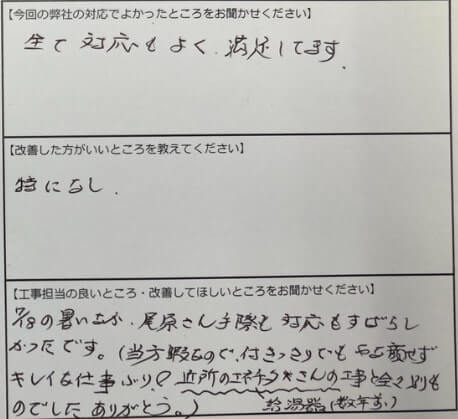 【今回の弊社の対応でよかったところをお聞かせください】
全て 対応もよく、満足してます.
【改善した方がいいところを教えてください】
特になし.
【工事担当の良いところ・改善してほしいところをお聞かせください】
7/18の暑いなか、尾原さん手際も対応もすばらし
かったです。(当方暇なので、付きっきりでも 顔せず
キレイな仕事ぶり! 近所の さんの工事と全く
のでした ありがとう。)
給湯器(数年前)